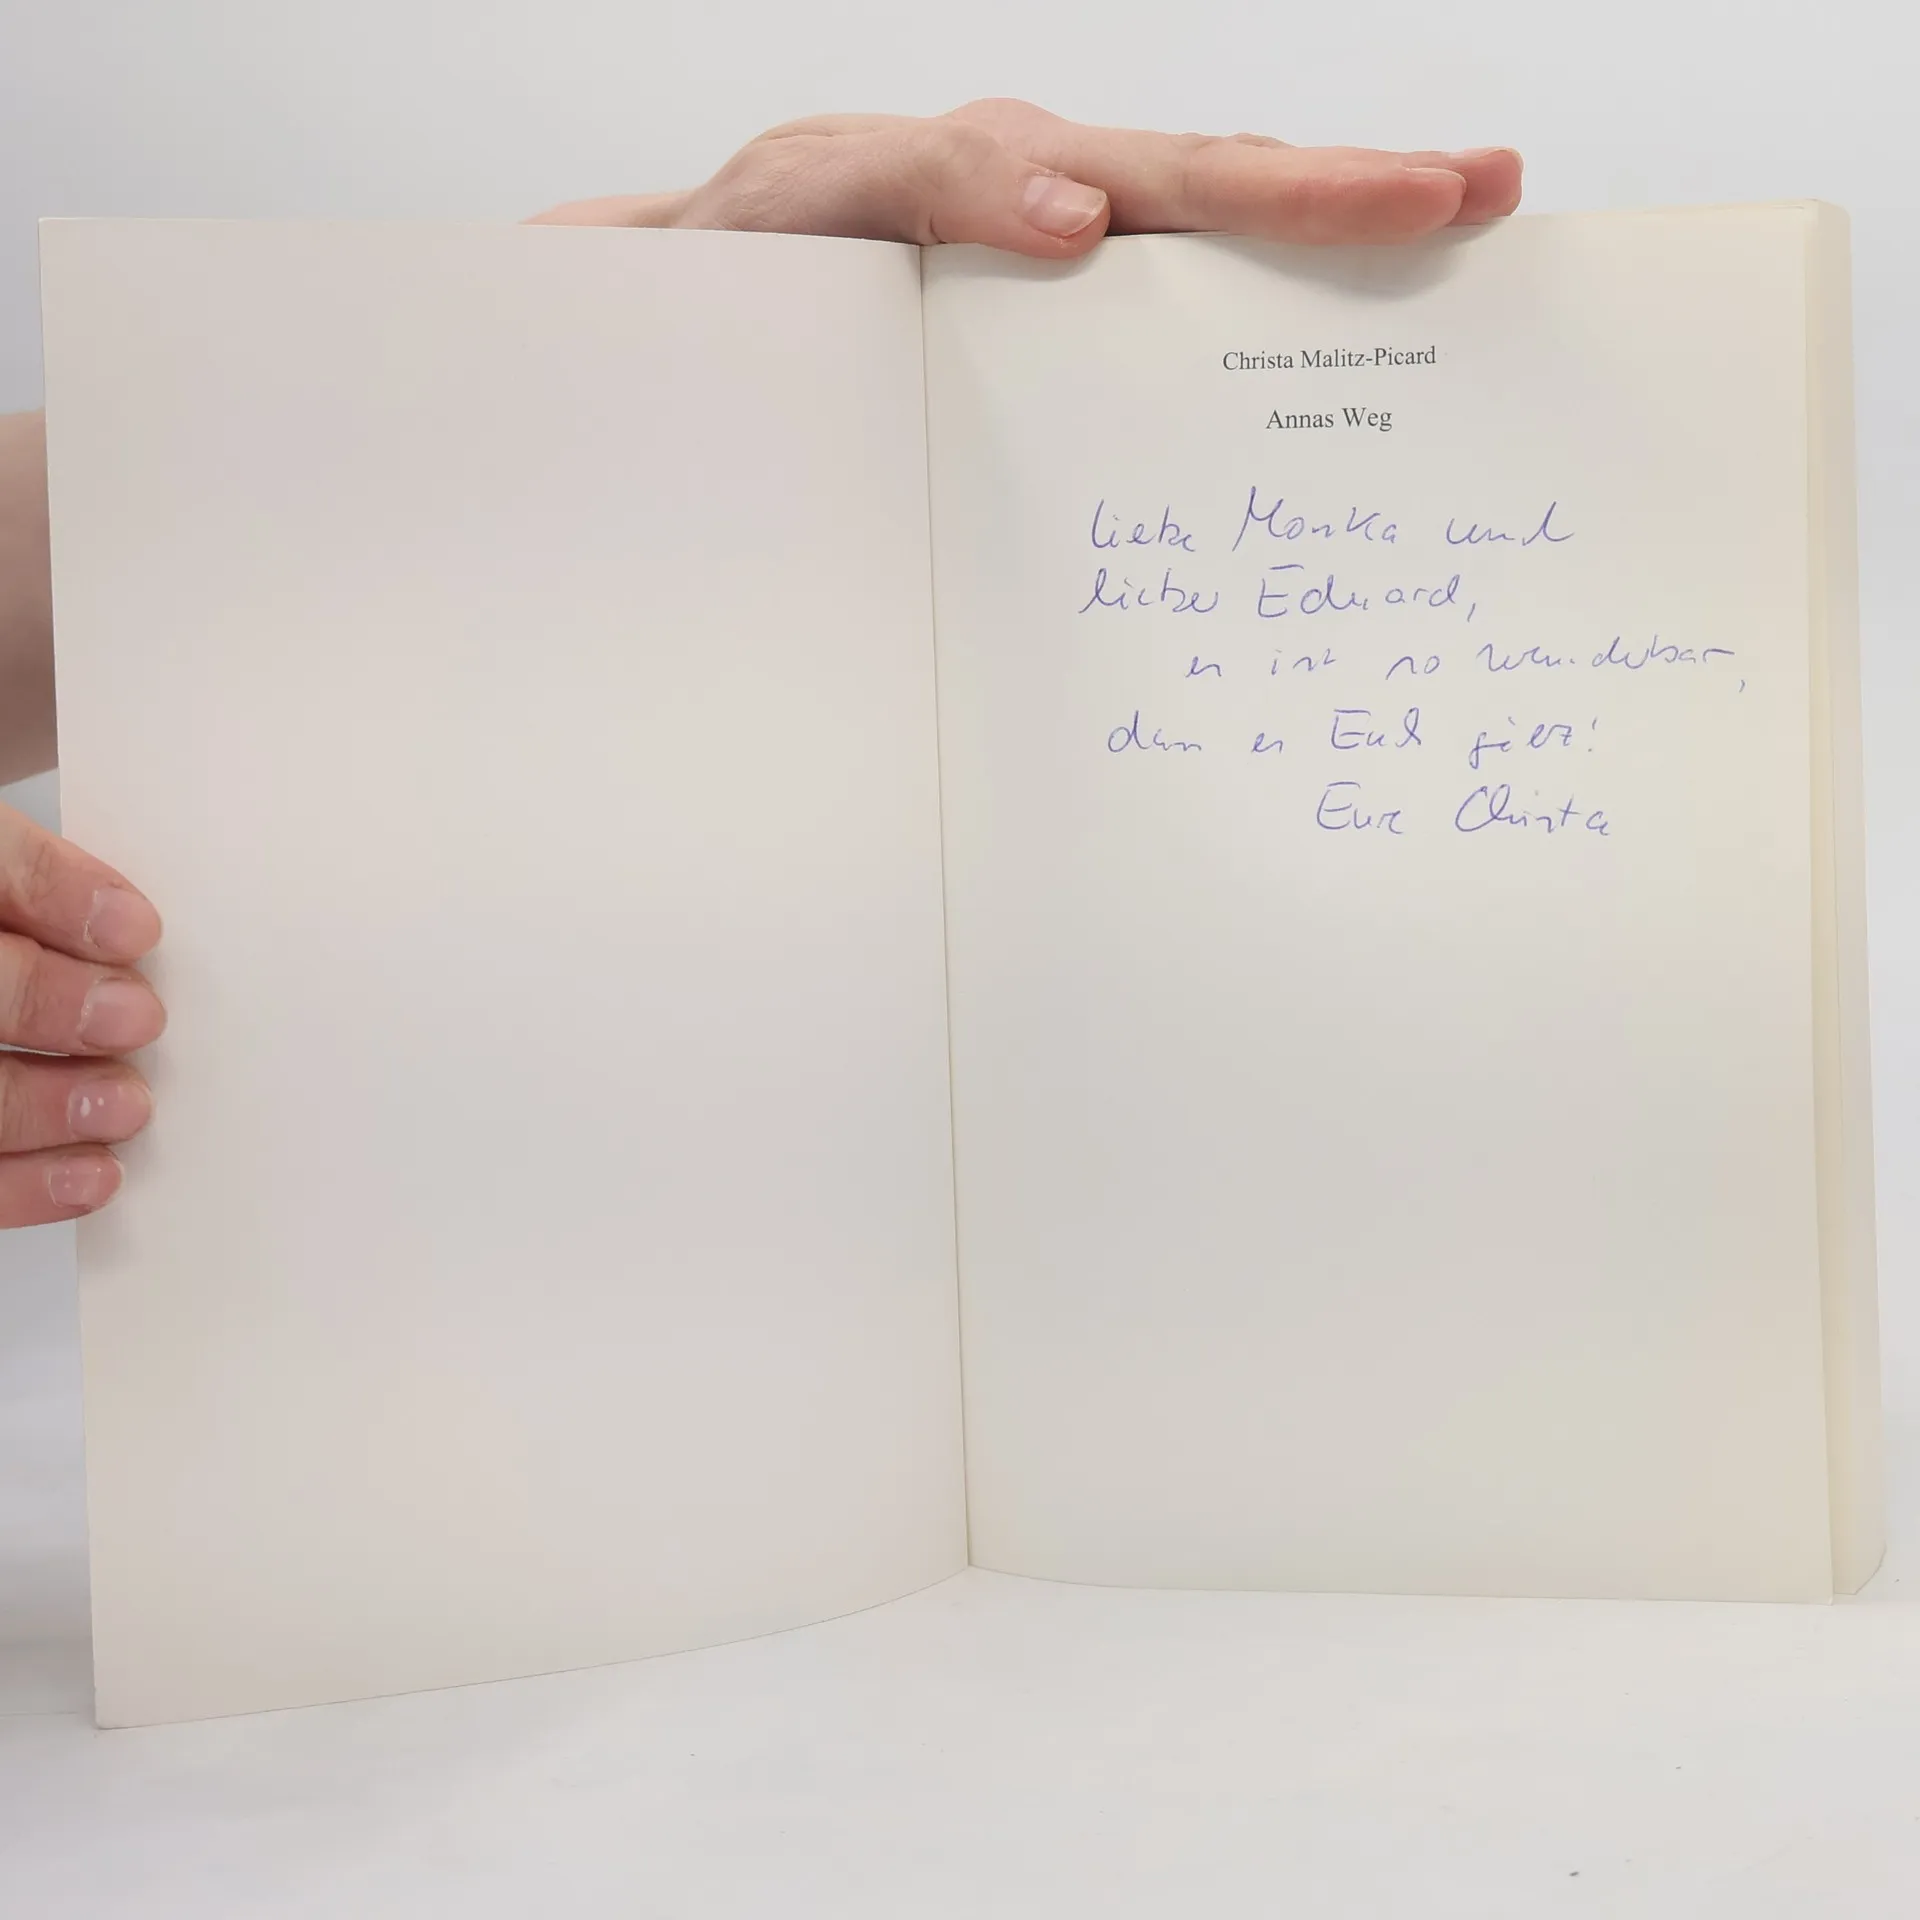 Christa Malitz-Picard
Annas Weg
Liebe Monika und
lieber Eduard,
es ist so wunderbar,
dass es Euch gibt!
Eure Christa